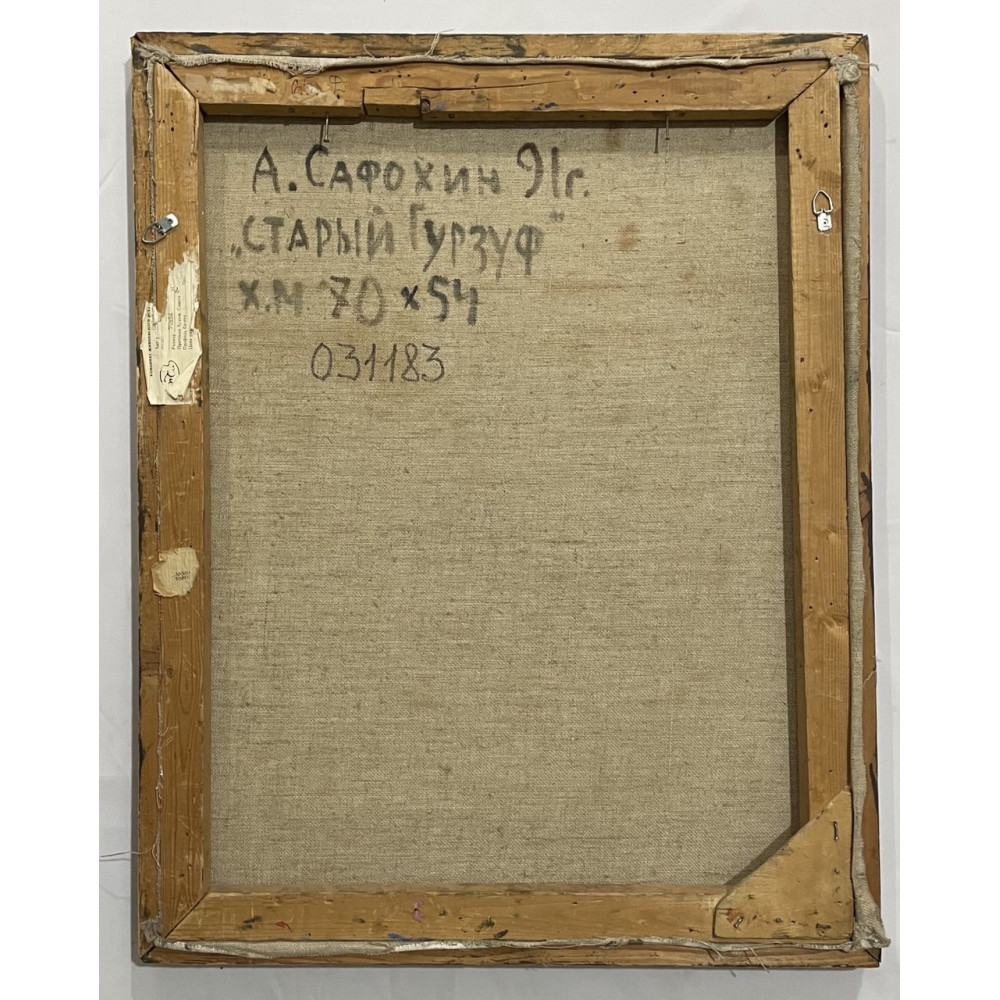 А. Сафохин 91г.
„СТАРЫЙ Гурзуф"
х.м 70 х 54
031183